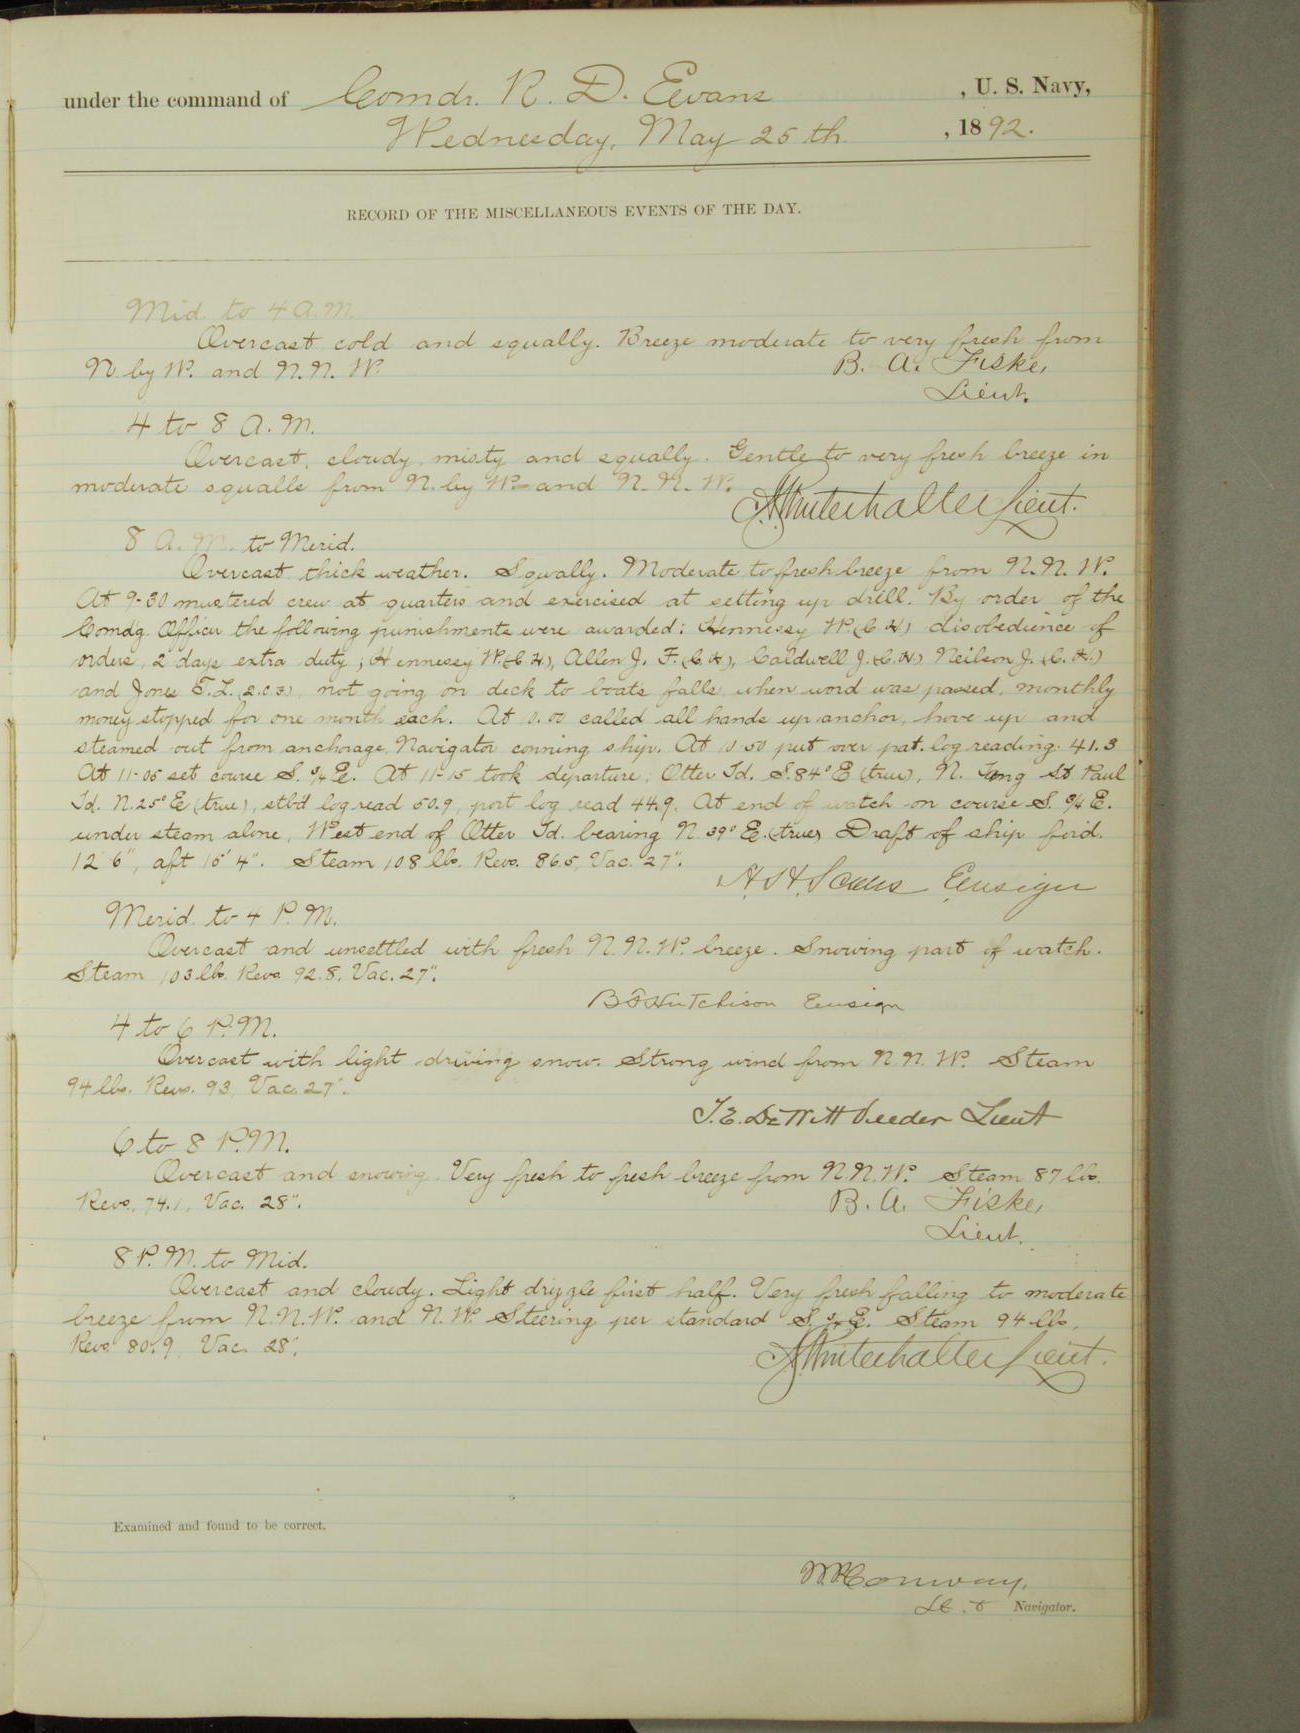 under the command of Comdr. R. D. Evans , U. S. Navy,
Wednesday, May 25th , 1892.
RECORD OF THE MISCELLANEOUS EVENTS OF THE DAY.
Mid. to 4 A.M.
Overcast cold and squally. Breeze moderate to very fresh from
N by W. and N. N. W.
B. A. Fiske,
Lieut.
4 to 8 A.M.
Overcast, cloudy, misty and squally. Gentle to very fresh breeze in
moderate squalls from N. by W. and N. N. W.
Winterhalter Lieut.
8 A.M. to Merid.
Overcast thick weather. Squally. Moderate to fresh breeze from N. N. W.
At 9-30 mustered crew at quarters and exercised at setting up drill. By order of the
Comdg. Officer the following punishments were awarded: Hennessy W. (C.H) disobedience of
orders, 2 days extra duty; Hennessy W. (C.H), Allen J. F. (C.H), Caldwell J. (C.H) Neilson J. (C.H.)
and Jones T. L. not going on deck to boats falls when word was passed, monthly
money stopped for one month each. At 10.00 called all hands up anchor, hove up and
steamed out from anchorage, Navigator conning ship. At 10 50 put over pat. log reading 41.3
At 11-05 set course S. ¾ E. At 11-15 took departure, Otter Id. S. 84° E (true), N. Tong St Paul
Id. N. 25° E (true), stb'd log read 50.9, port log read 44.9. At end of watch on course S. ¾ E.
under steam alone, West end of Otter Id. bearing N 39° E. (true) Draft of ship for'd.
12' 6", aft 15' 4". Steam 108 lbs. Revs. 86.5, Vac. 27".
Ensign
Merid. to 4 P.M.
Overcast and unsettled with fresh N. N. W. breeze. Snowing part of watch.
Steam 103 lbs. Revs 92.8, Vac. 27".
B F Hutchison Ensign
4 to 6 P.M.
Overcast with light driving snow. Strong wind from N. N. W. Steam
94 lbs. Revs. 93, Vac. 27".
T. E. DeWitt Veeder Lieut
6 to 8 P.M.
Overcast and snowing. Very fresh to fresh breeze from N. N. W. Steam 87 lbs.
Revs. 74.1, Vac. 28".
B. A. Fiske,
Lieut.
8 P.M. to Mid.
Overcast and cloudy. Light drizzle first half. Very fresh falling to moderate
breeze from N. N. W. and N. W. Steering per standard S. ¾ E. Steam 94 lbs,
Revs. 80.9, Vac. 28".
Winterhalter Lieut.
Examined and found to be correct.
W P Conway,
Lt. Navigator.